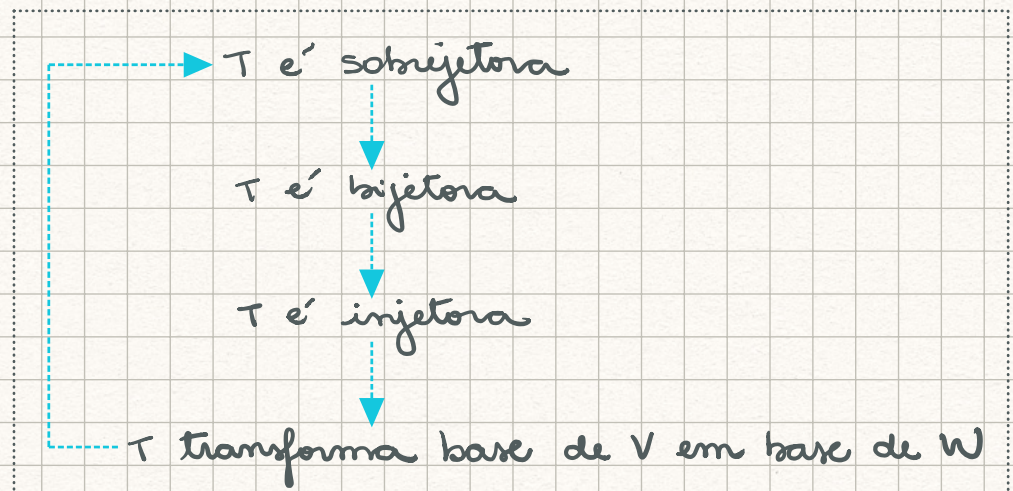 T é sobrejetora
T é bijetora
T é injetora
T transforma base de V em base de W